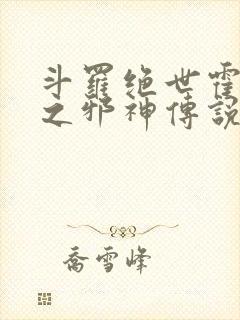 斗羅绝世霍
之邪神傳說
喬雪峰